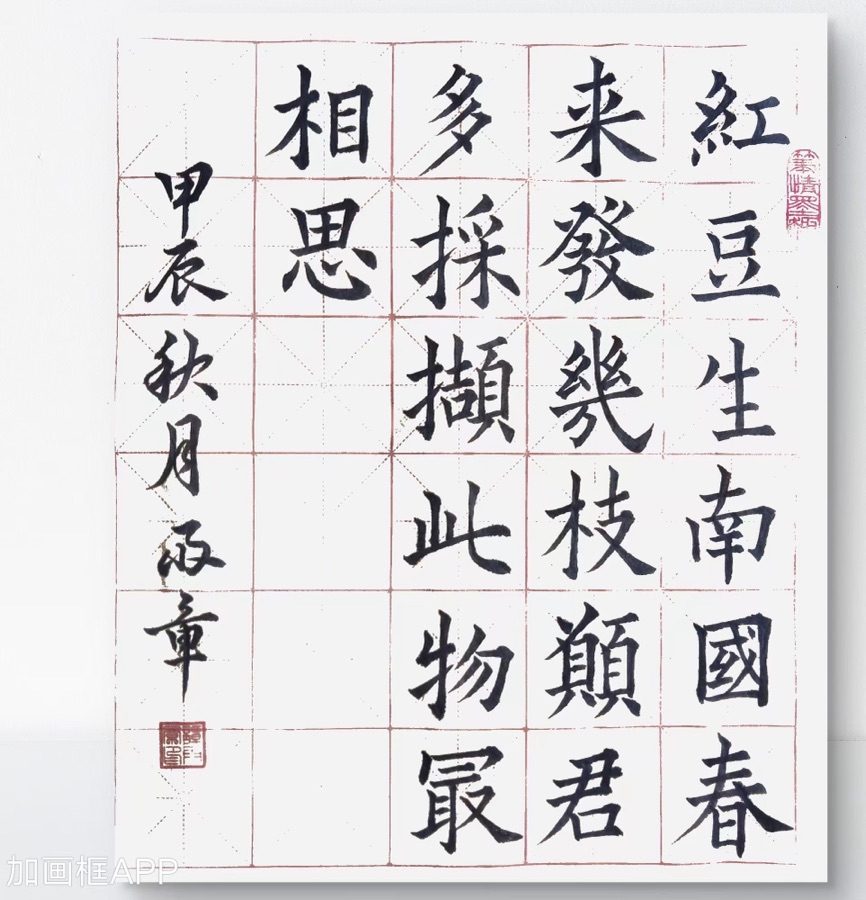 紅豆生南國春
来發幾枝願君
多採擷此物最
相思
甲辰秋月章
加画框APP